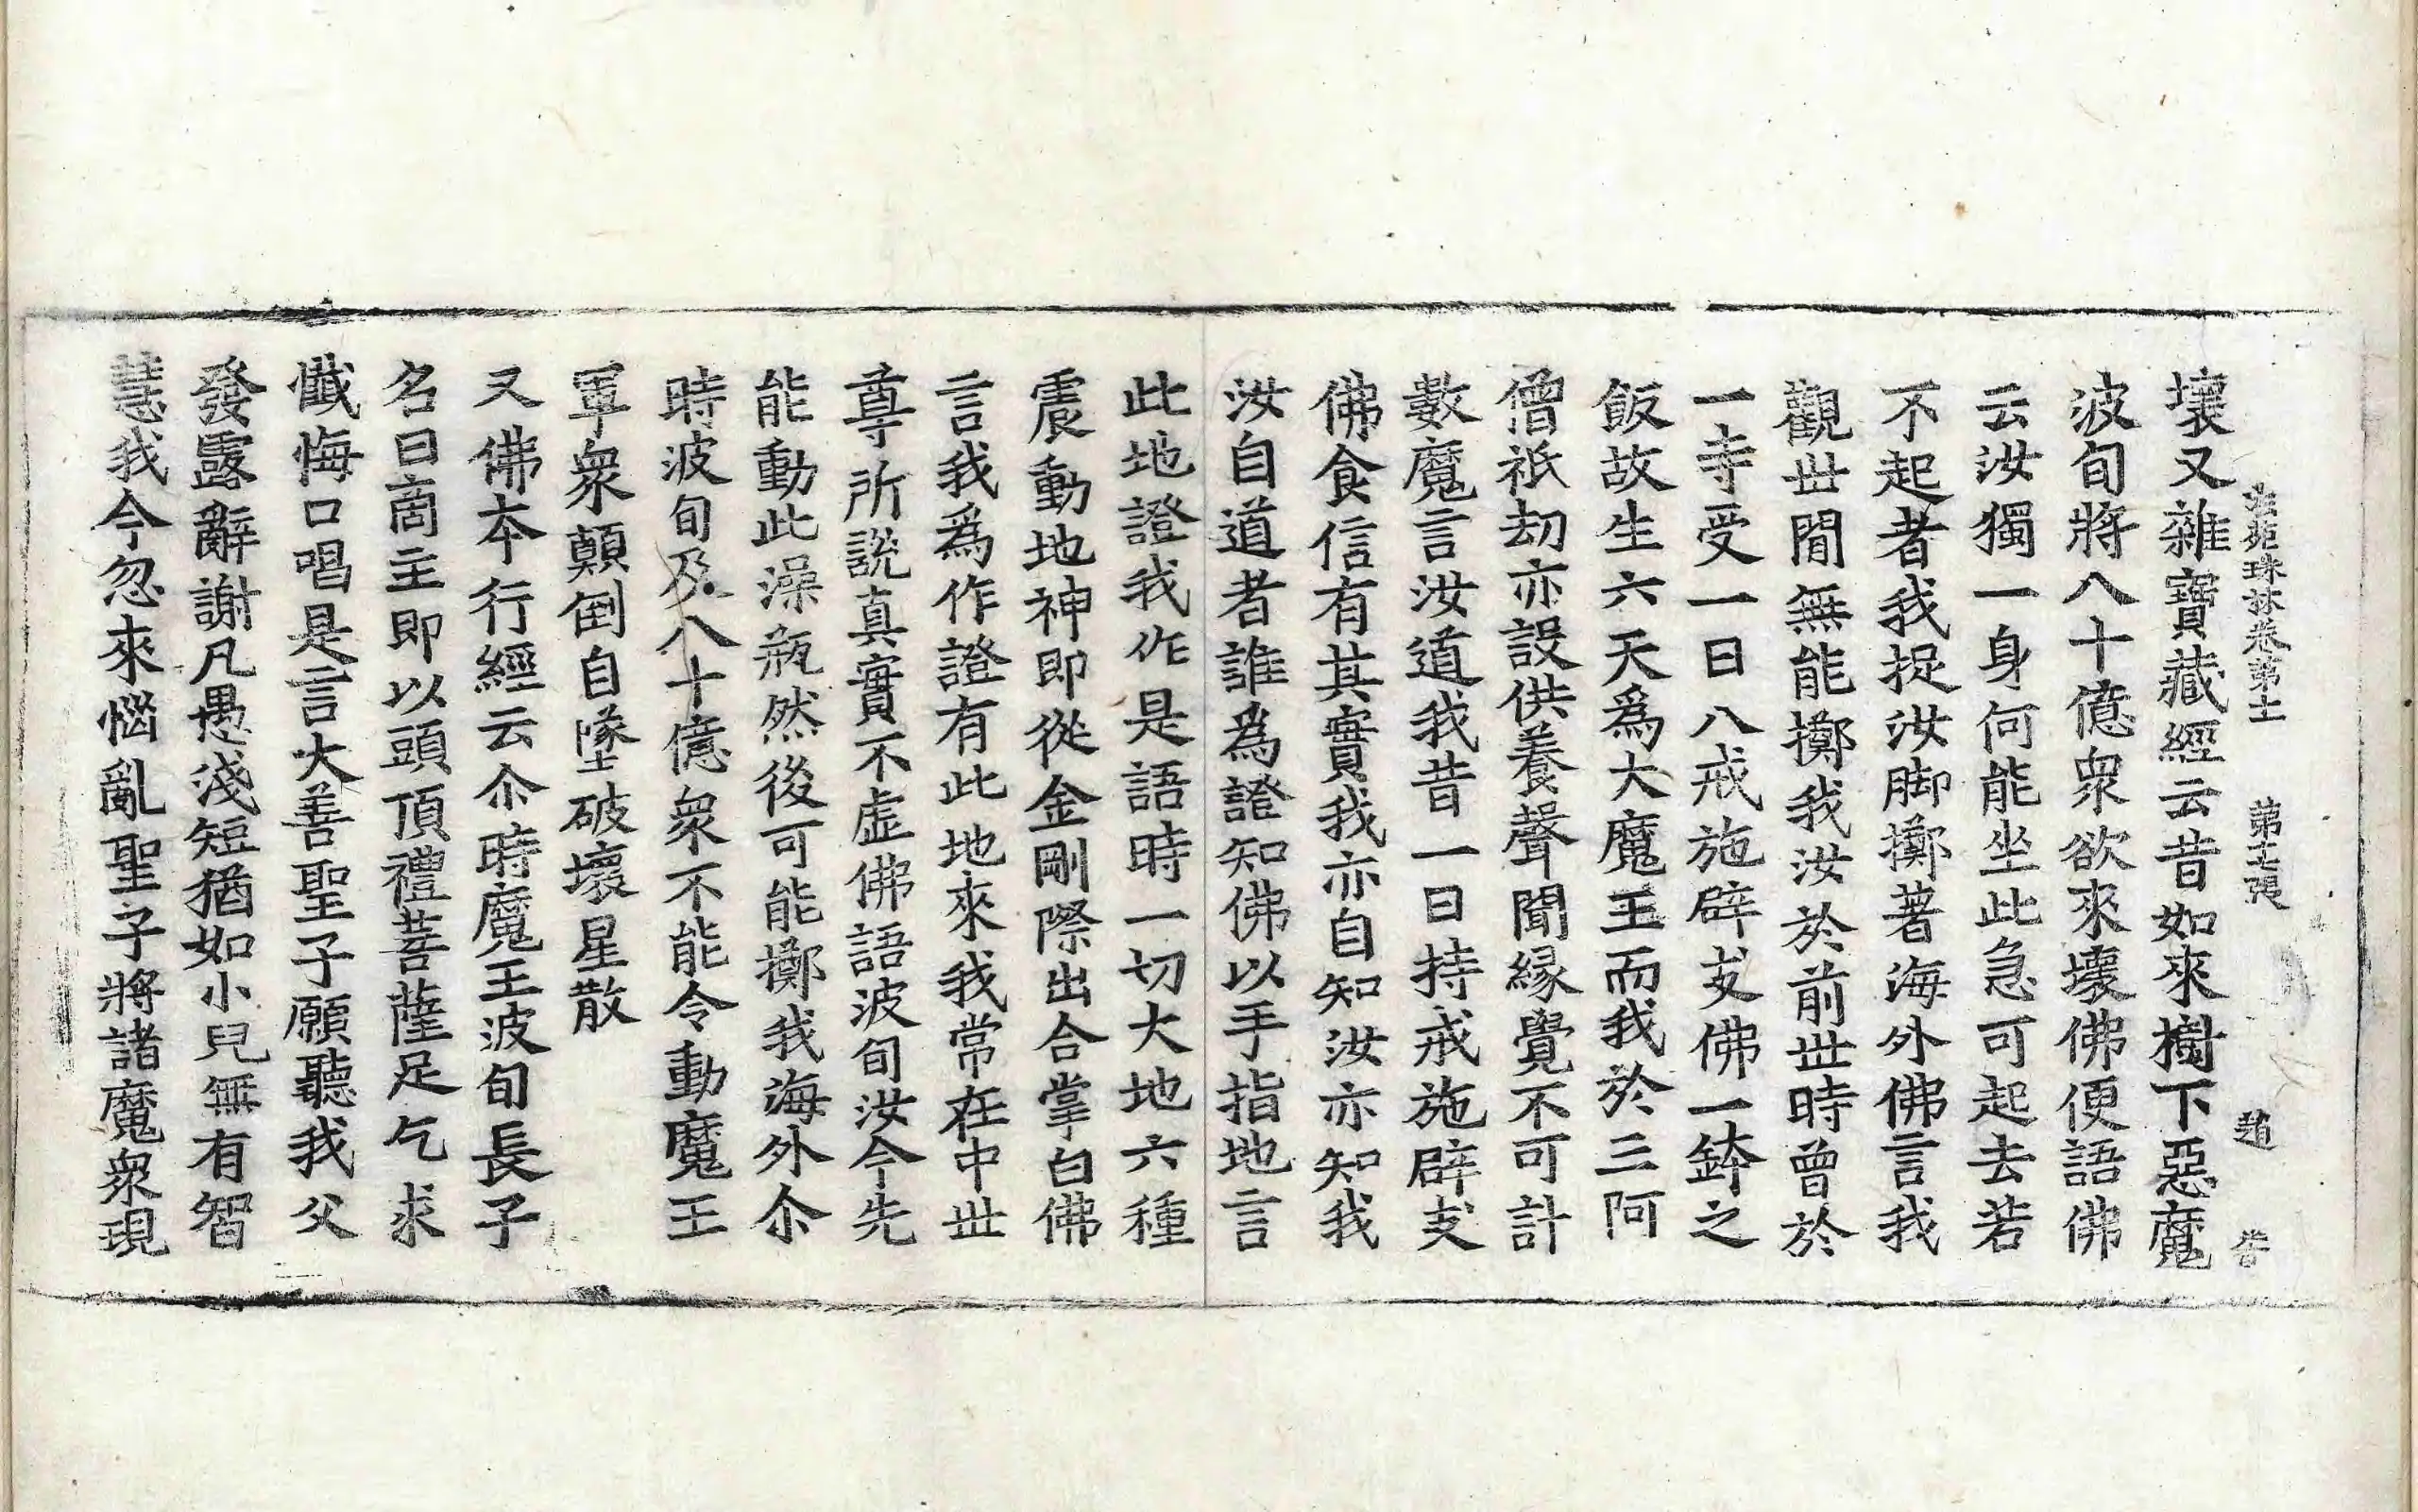 法苑珠林卷第十一 第十七張 趙
壞又雜寶藏經云昔如來樹下惡魔
波旬將八十億衆欲來壞佛便語佛
云汝獨一身何能坐此急可起去若
不起者我捉汝脚擲著海外佛言我
觀世閒無能擲我汝於前世時曾於
一寺受一日八戒施辟支佛一鉢之
飯故生六天爲大魔王而我於三阿
僧祇劫亦設供養聲聞緣覺不可計
數魔言汝道我昔一日持戒施辟支
佛食信有其實我亦自知汝亦知我
汝自道者誰爲證知佛以手指地言
此地證我作是語時一切大地六種
震動地神即從金剛際出合掌白佛
言我爲作證有此地來我常在中世
尊所說真實不虛佛語波旬汝今先
能動此澡瓶然後可能擲我海外尒
時波旬及八十億衆不能令動魔王
軍衆顛倒自墜破壞星散
又佛本行經云尒時魔王波旬長子
名曰啇主即以頭頂禮菩薩足乞求
懺悔口唱是言大善聖子願聽我父
發露辭謝凡愚淺短猶如小兒無有智
慧我今忽來惱亂聖子將諸魔衆現